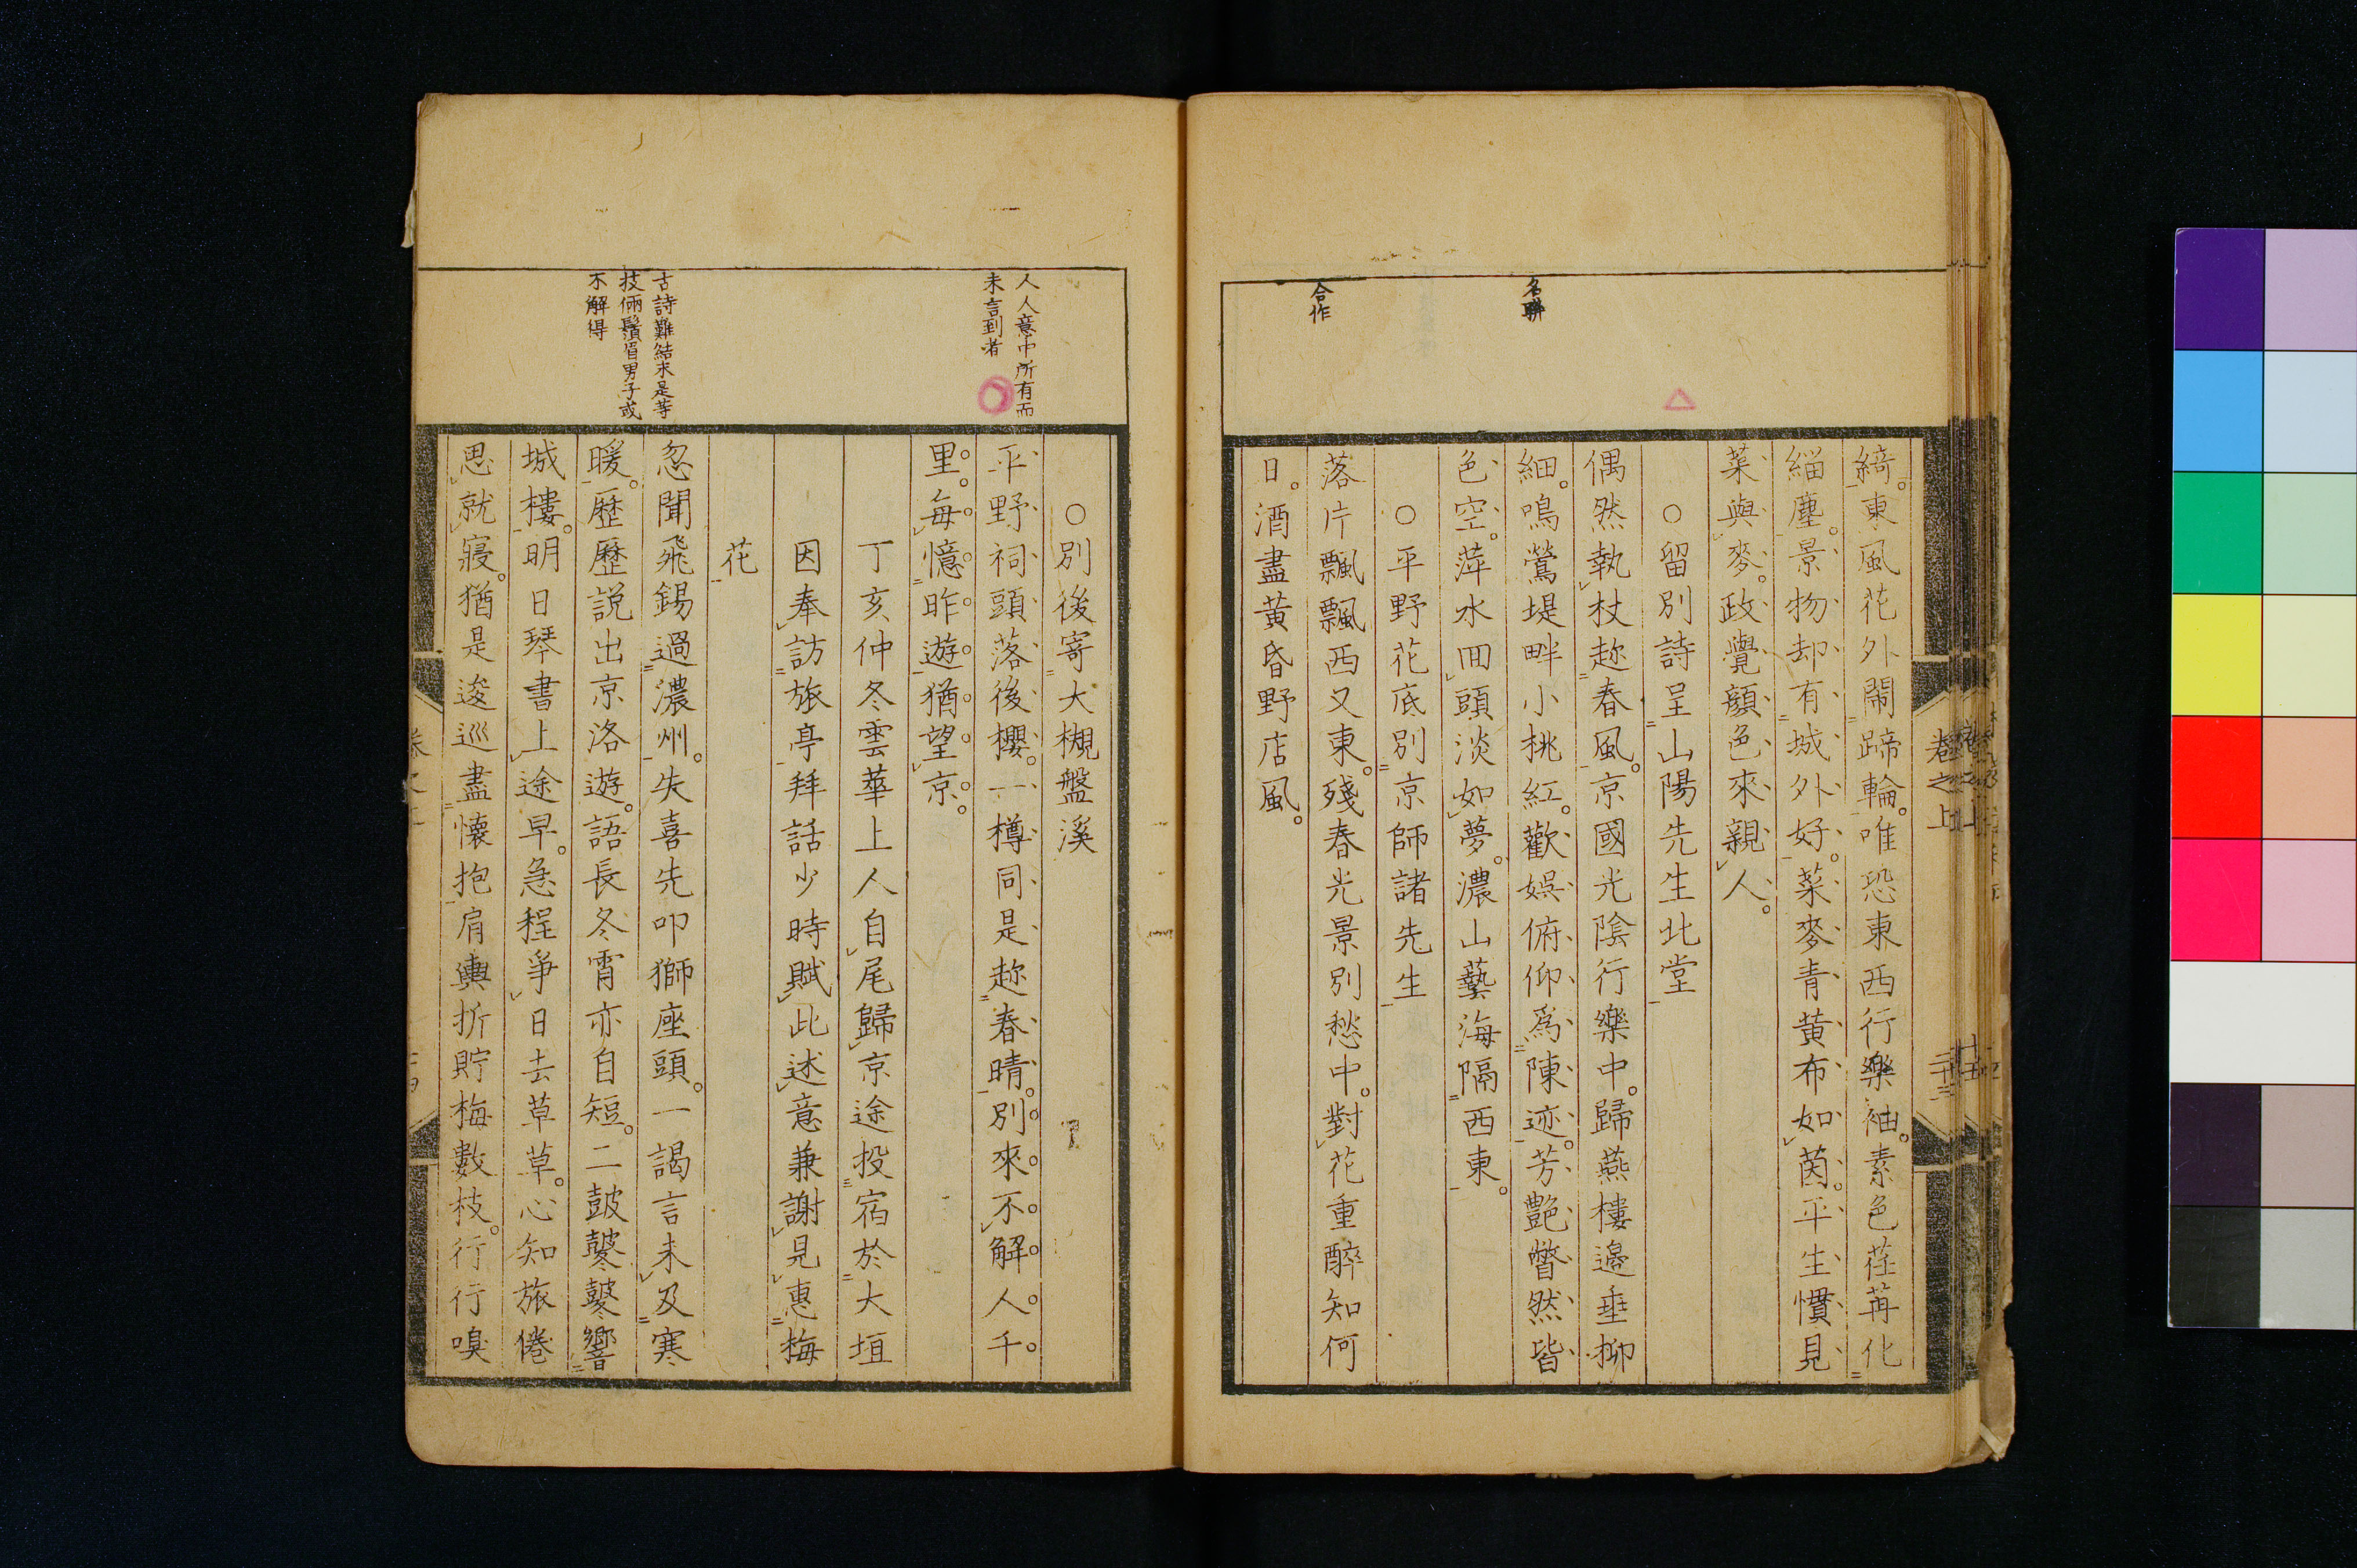 名聯
合作
綺。東風花外鬧蹄輪。唯恐東西行樂袖。素色荏苒化
緇塵。景物却有城外好。菜麥青黄布如茵。平生慣見
菜與麥。政覺顏色來親人。
○留別詩呈山陽先生北堂
偶然執杖趂春風。京國光陰行樂中。歸燕樓邉垂柳
細。鳴鶯堤畔小桃紅。歡娯俯仰爲陳迹。芳艶瞥然皆
色空。萍水回頭淡如夢。濃山藝海隔西東。
○平野花底別京師諸先生
落片飄飄西又東。殘春光景別愁中。對花重醉知何
日。酒盡黄昏野店風。
卷之上
人人意中所有而
未言到者
古詩難結末是等
技倆鬚眉男子或
不解得
○別後寄大槻盤溪
平野祠頭落後櫻。一樽同是趂春晴。別來不解人千
里。毎憶昨遊猶望京。
丁亥仲冬雲華上人自尾歸京途投宿於大垣
因奉訪旅亭拜話少時賦此述意兼謝見惠梅
花
忽聞飛錫過濃州。失喜先叩獅座頭。一謁言未及寒
暖。歴歷説出京洛遊。語長冬霄亦自短。二鼓鼕鼕響
城樓。明日琴書上途早。急程爭日去草草。心知旅倦
思就寢。猶是逡巡盡懐抱肩輿折貯梅數枝。行行嗅